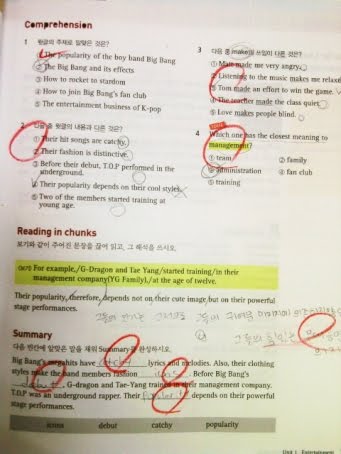 Comprehension
1 윗글의 주제로 알맞은 것은?
① The popularity of the boy band Big Bang
② The Big Bang and its effects
③ How to rocket to stardom
④ How to join Big Bang's fan club
⑤ The entertainment business of K-pop
2 다음 중 윗글의 내용과 다른 것은?
① Their hit songs are catchy.
② Their fashion is distinctive.
③ Before their debut, T.O.P performed in the
underground.
④ Their popularity depends on their cool styles.
⑤ Two of the members started training at
young age.
3 다음 중 make의 쓰임이 다른 것은?
① Matt made me very angry.
② Listening to the music makes me relaxed
③ Tom made an effort to win the game.
④ The teacher made the class quiet.
⑤ Love makes people blind.
4 Which one has the closest meaning to
management?
① team ② family
③ administration ④ fan club
⑤ training
Reading in chunks
보기와 같이 주어진 문장을 끊어 읽고, 그 해석을 쓰시오.
For example,/G-Dragon and Tae Yang/started training/in their
management company(YG Family),/at the age of twelve.
Their popularity, therefore, depends not on their cute image but on their powerful
stage performances.
Summary
다음 빈칸에 알맞은 말을 채워 Summary를 완성하시오.
Big Bang's mega hits have lyrics and melodies. Also, their clothing
styles make the band members fashion icons. Before Big Bang's
debut, G-dragon and Tae-Yang trained in their management company.
T.O.P was an underground rapper. Their depends on their powerful
stage performances.
icons debut catchy popularity
Unit 1 Entertainment